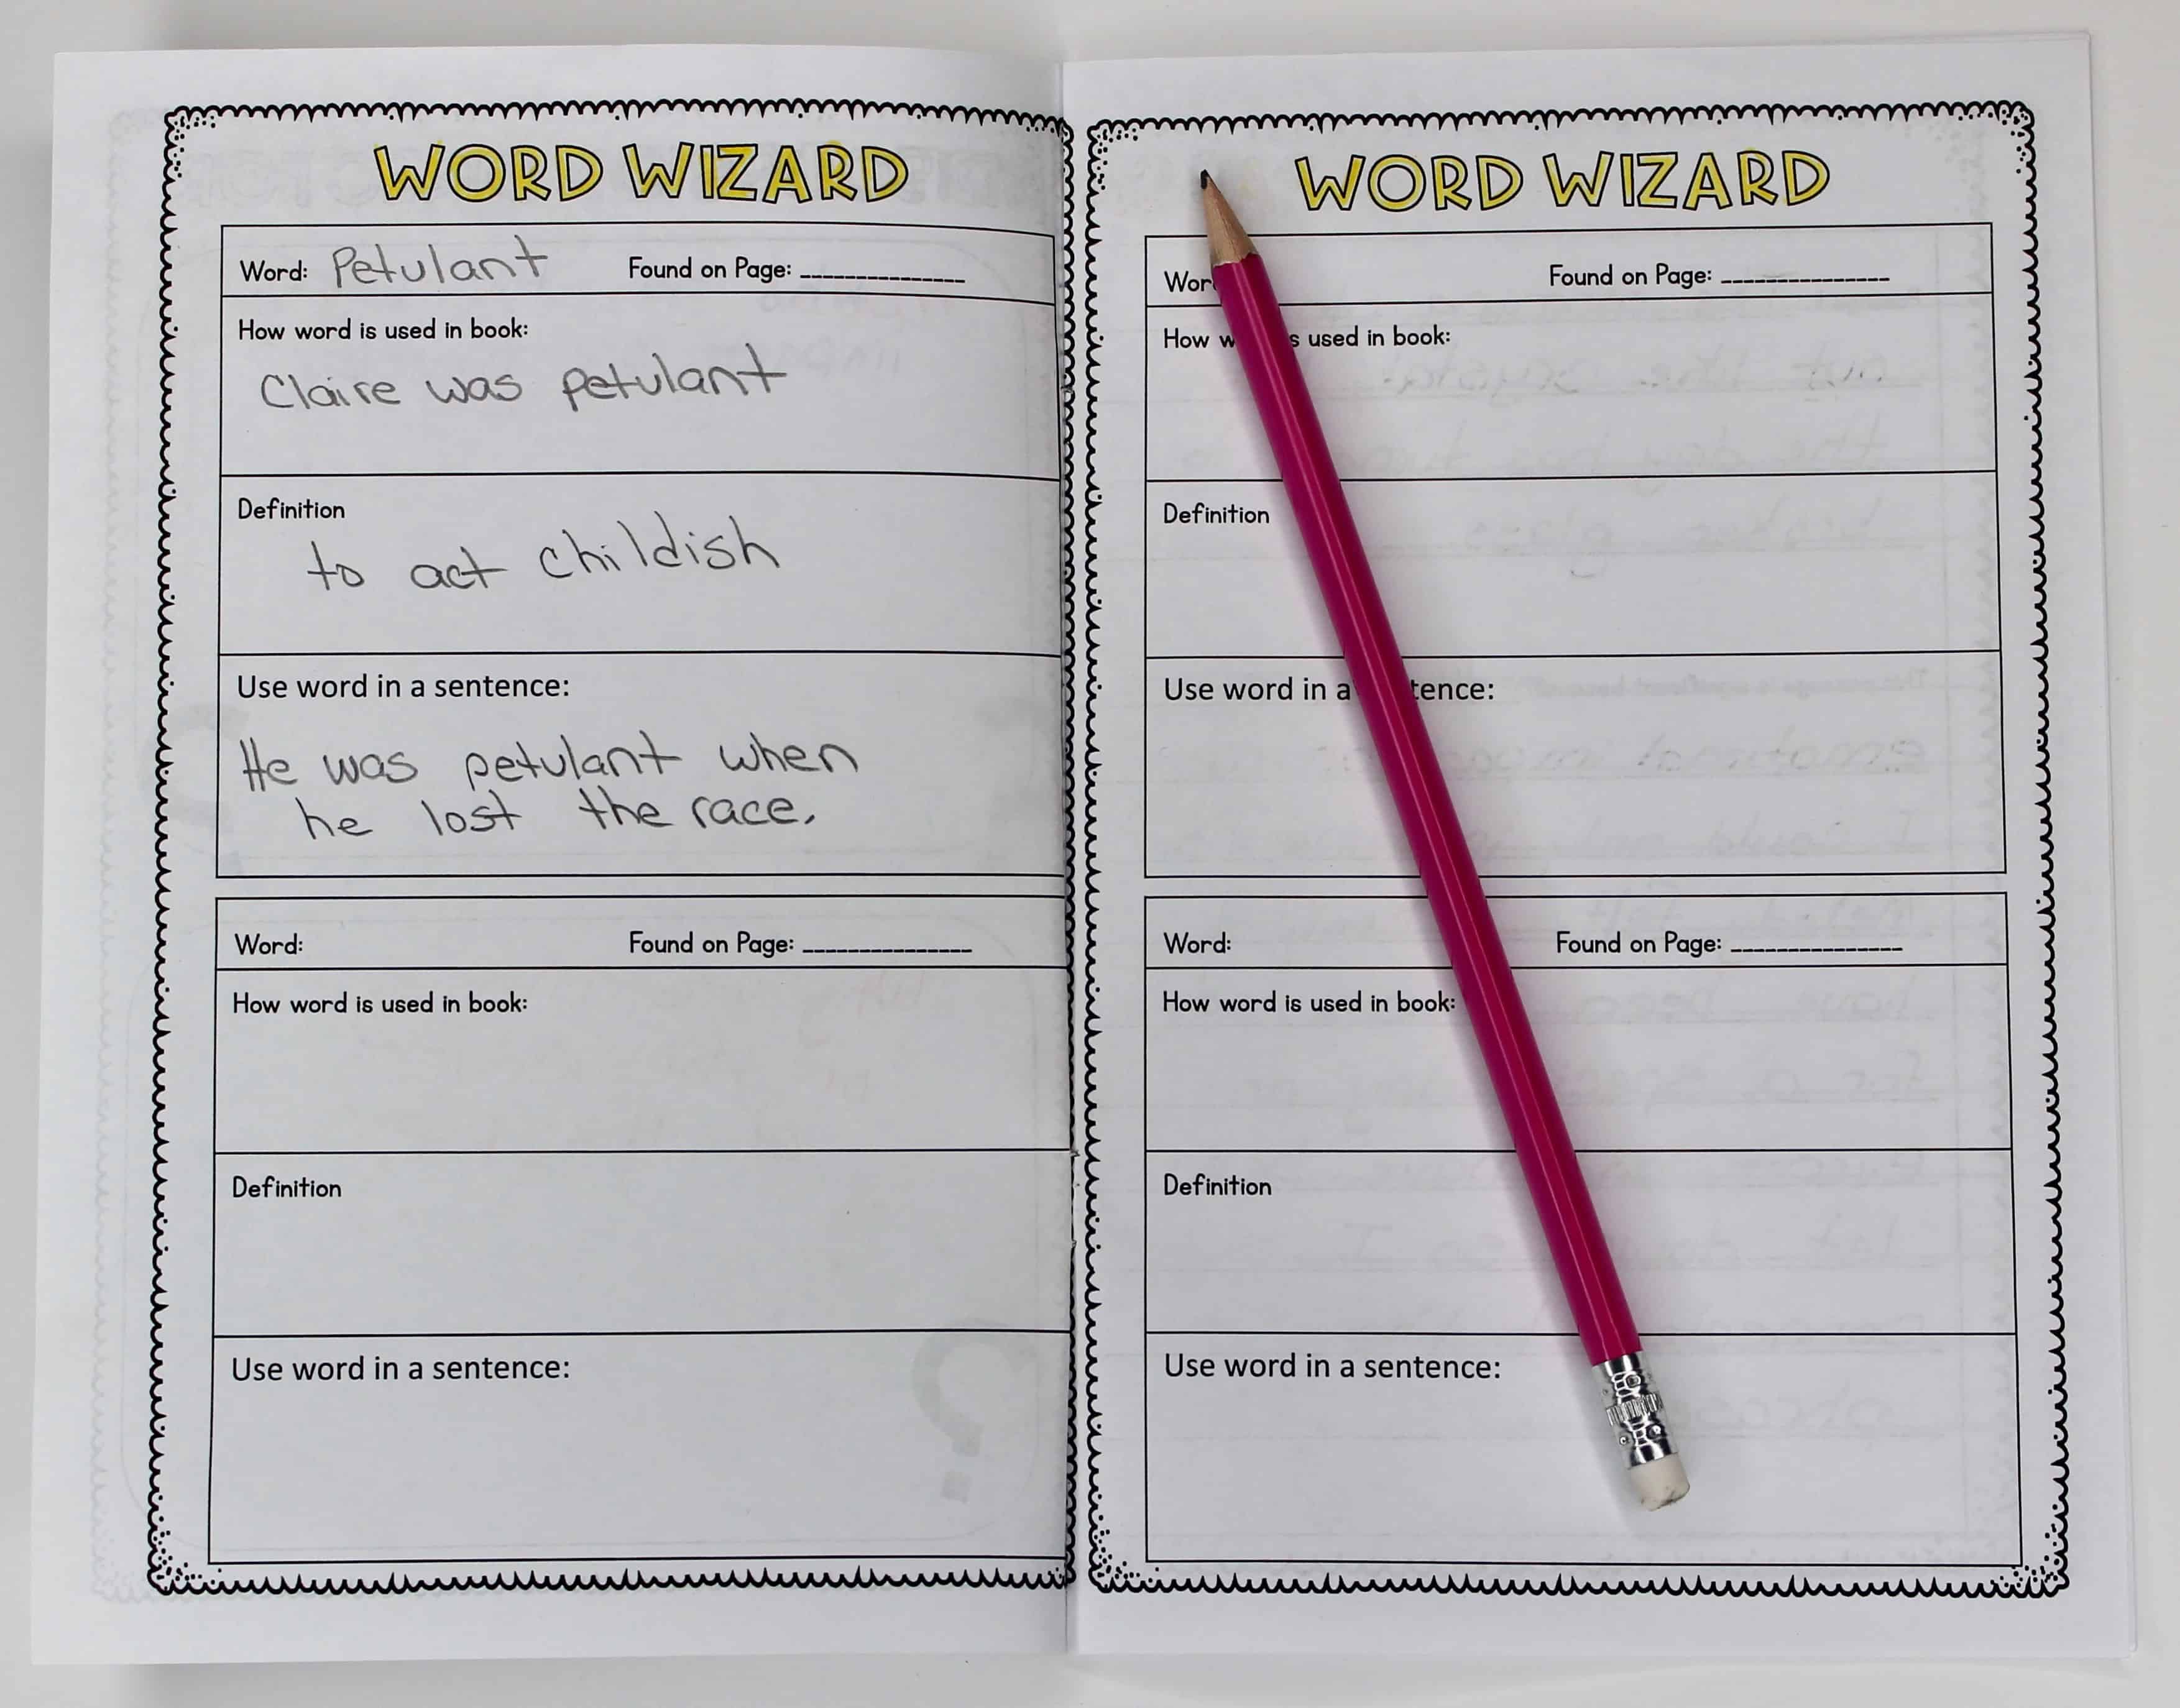 WORD WIZARD
Word: Petulant Found on Page: _______________
How word is used in book:
Claire was petulant
Definition
to act childish
Use word in a sentence:
He was petulant when
he lost the race.
Word: Found on Page: _______________
How word is used in book:
Definition
Use word in a sentence:
WORD WIZARD
Found on Page: _______________
How used in book:
Definition
Use word in a
Word: Found on Page: _______________
How word is used in book:
Definition
Use word in a sentence: